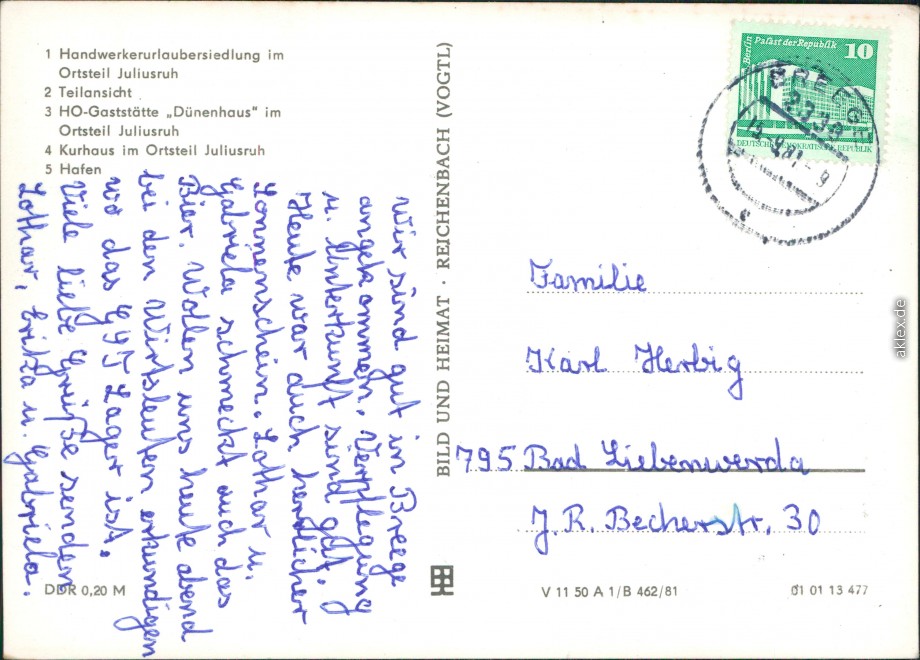 1 Handwerkerurlaubersiedlung im
Ortsteil Juliusruh
2 Teilansicht
3 HO-Gaststätte „Dünenhaus" im
Ortsteil Juliusruh
4 Kurhaus im Ortsteil Juliusruh
5 Hafen
Wir sind gut in Breege
angekommen. Verpflegung
u. Unterkunft sind gut.
Heute war auch herrlicher
Sonnenschein. Lothar u.
Gabriela schmeckt auch das
Bier. Wollen uns heute abend
bei den Wirtsleuten erkundigen
wo das GST Lager ist.
Viele liebe Grüße senden
Lothar, Erika u. Gabriela.
DDR 0,20 M
BILD UND HEIMAT · REICHENBACH (VOGTL)
Berlin Palast der Republik
10
DEUTSCHE DEMOKRATISCHE REPUBLIK
BREEGE
2338
Familie
Karl Herbig
795 Bad Liebenwerda
J. R. Becherstr. 30
V 11 50 A 1/B 462/81
01 01 13 477
aklex.de